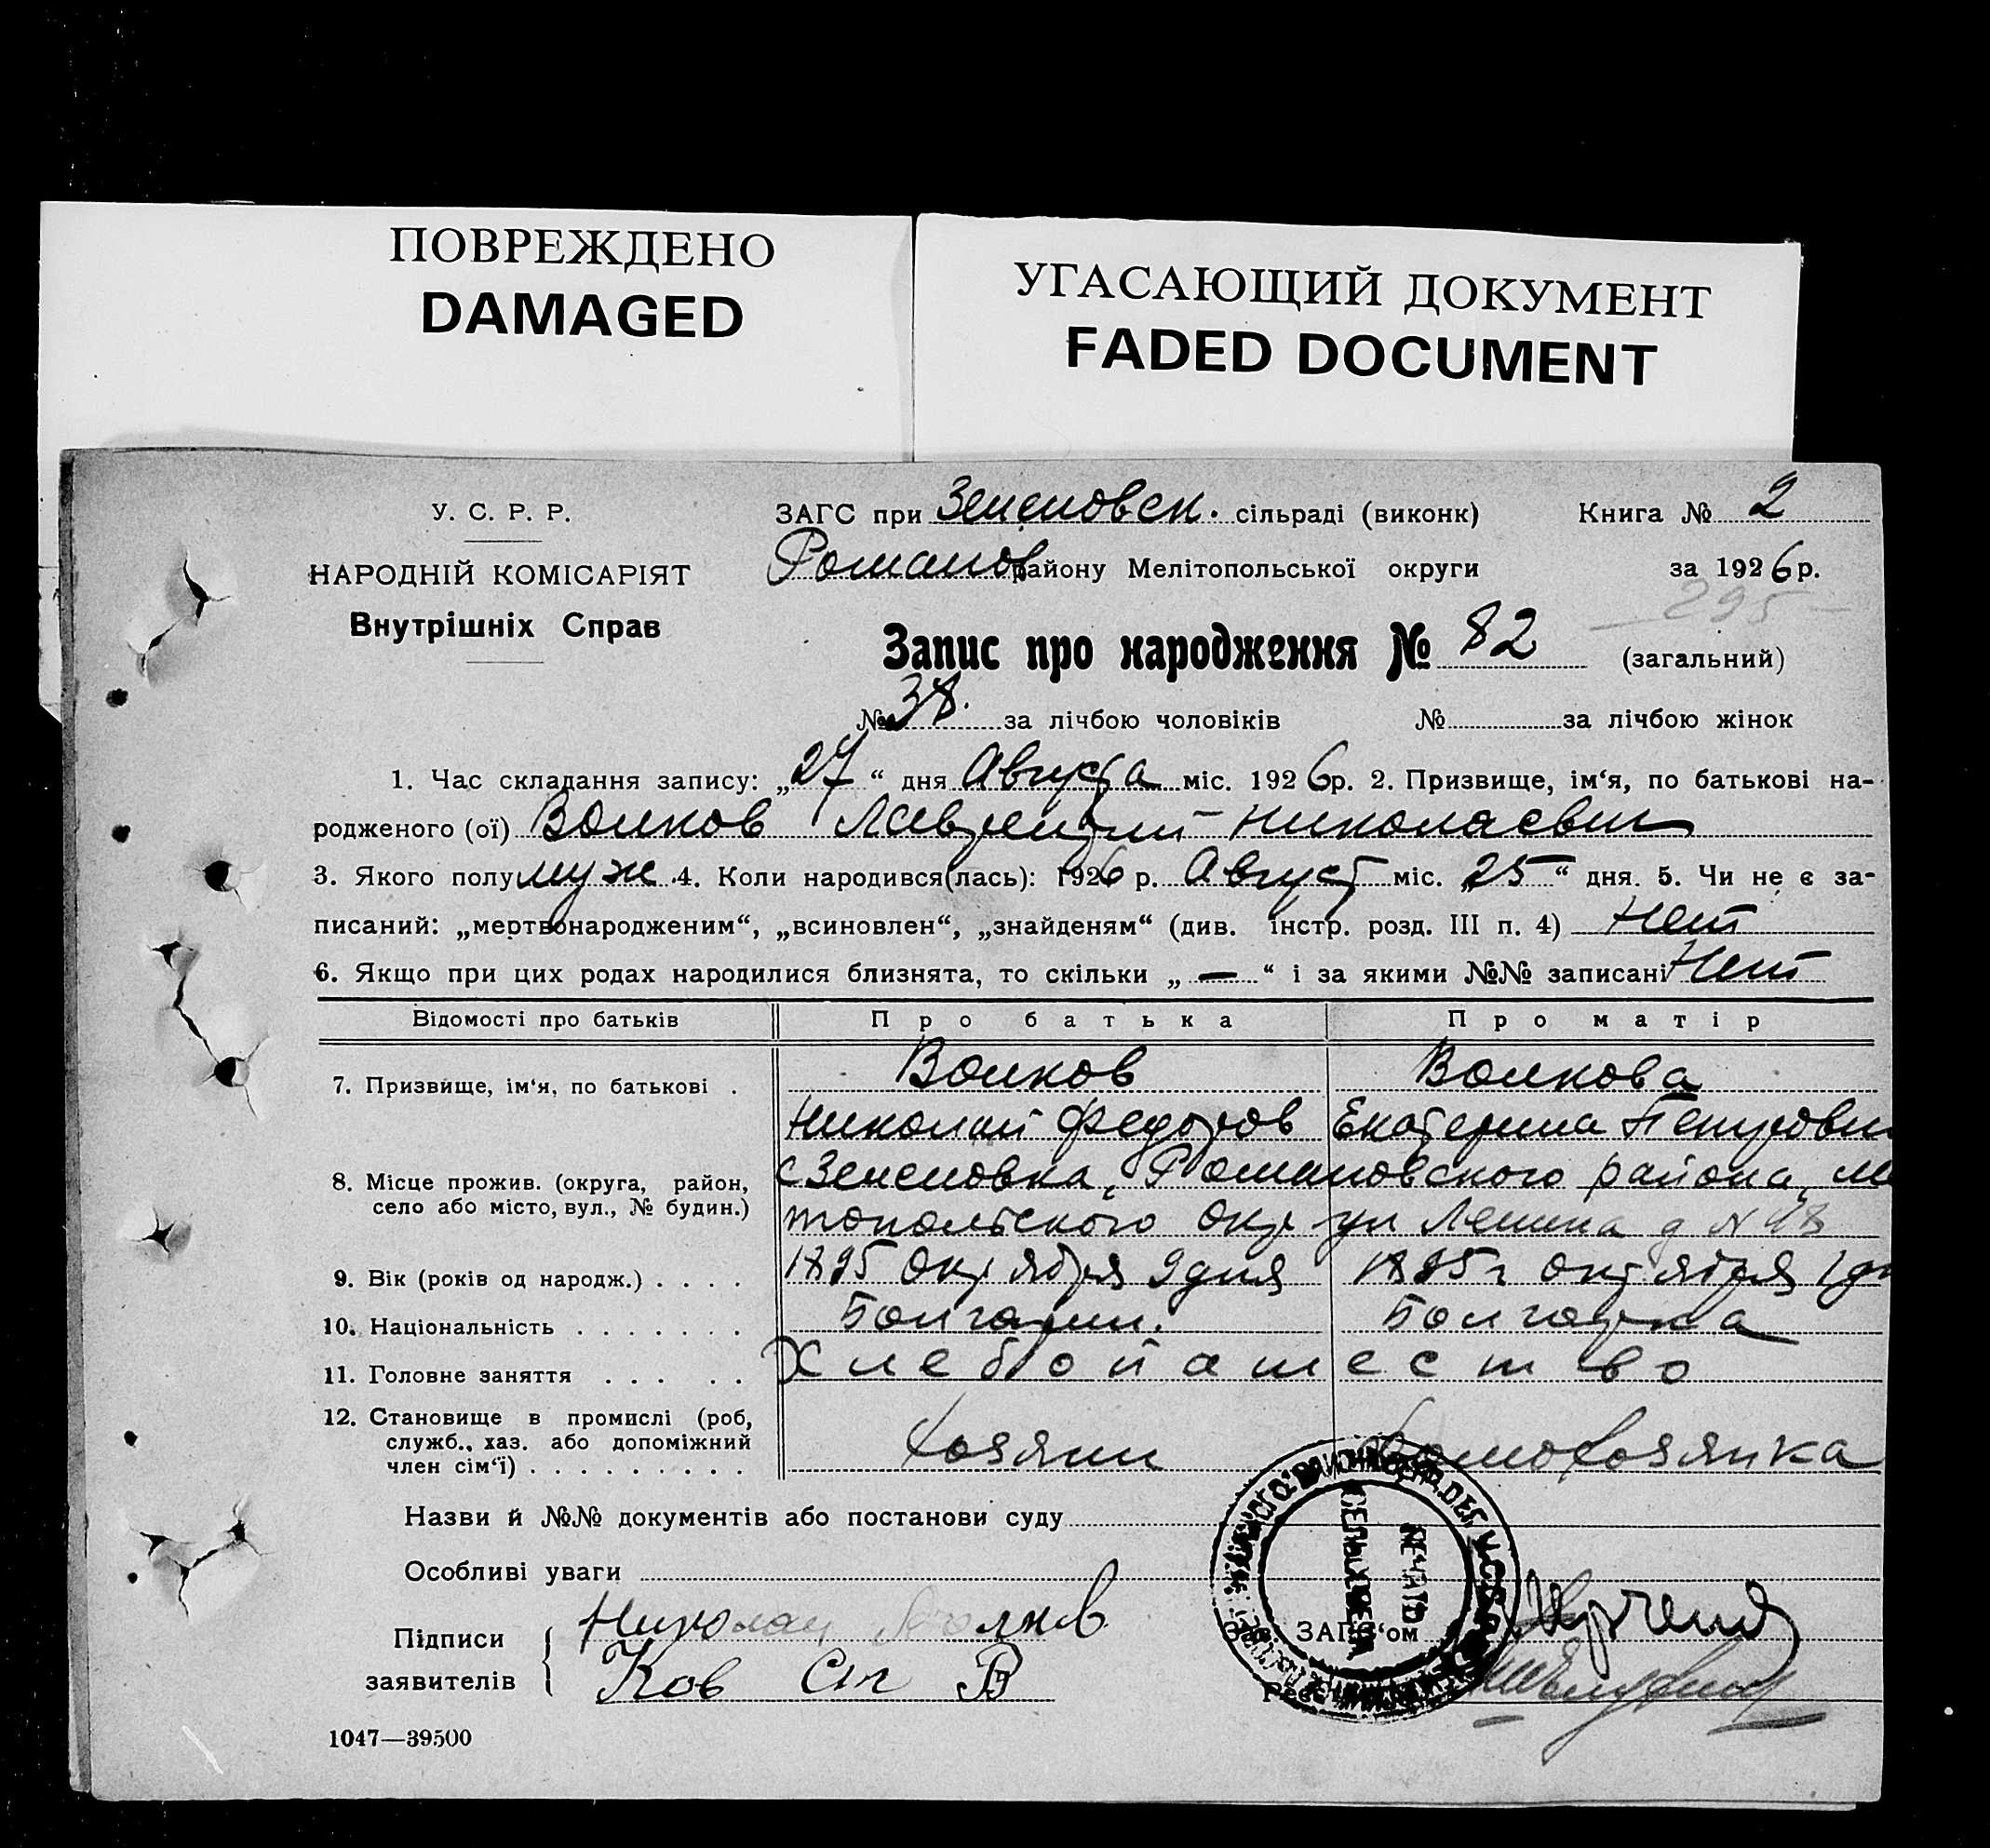 ПОВРЕЖДЕНО
DAMAGED
УГАСАЮЩИЙ ДОКУМЕНТ
FADED DOCUMENT
У. С. Р. Р.
НАРОДНІЙ КОМІСАРІЯТ
Внутрішніх Справ
ЗАГС при Зеленовск. сільраді (виконк) Книга № 2
Романов району Мелітопольської округи за 1926 р.
295
Запис про народження № 82 (загальний)
№ 38. за лічбою чоловіків № за лічбою жінок
1. Час складання запису: „27“ дня Августа міс. 1926 р. 2. Призвище, ім‘я, по батькові на-
родженого (ої) Волков Лаврентий Николаевич
3. Якого полу муж 4. Коли народився(лась): 1926 р. Август міс. „25“ дня. 5. Чи не є за-
писаний: „мертвонародженим“, „всиновлен“, „знайденям“ (див. інстр. розд. III п. 4) Нет
6. Якщо при цих родах народилися близнята, то скільки „—“ і за якими №№ записані Нет
Відомості про батьків Про батька Про матір
7. Призвище, ім‘я, по батькові . Волков Волкова
Николай Федоров Екатерина Петровн
8. Місце прожив. (округа, район, село або місто, вул., № будин.) с Зеленовка, Романовского района, Ме
топольского окр ул Ленина д N 98
9. Вік (років од народж.) . . . . 1895 октября 9 дня 1895 г октября 1 дн
10. Національність . . . . . . . Болгарин. Болгарка
11. Головне заняття . . . . . Хлебопашество
12. Становище в промислі (роб, служб., хаз. або допоміжний член сім‘ї) . . . . . . . . . Хозяин Домохозяйка
Назви й №№ документів або постанови суду
Особливі уваги
Підписи заявителів Николай Волков
Ков Ст В
ЗАГС‘ом
ПЕЧАТЬ
1047—39500